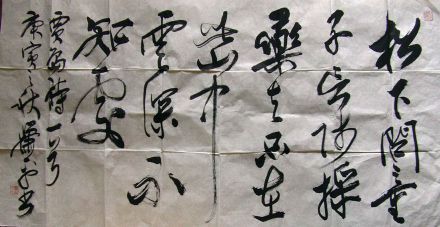 松下問童
子言師採
藥去只在
此山中
雲深不
知處
賈島詩一首
庚寅之秋書